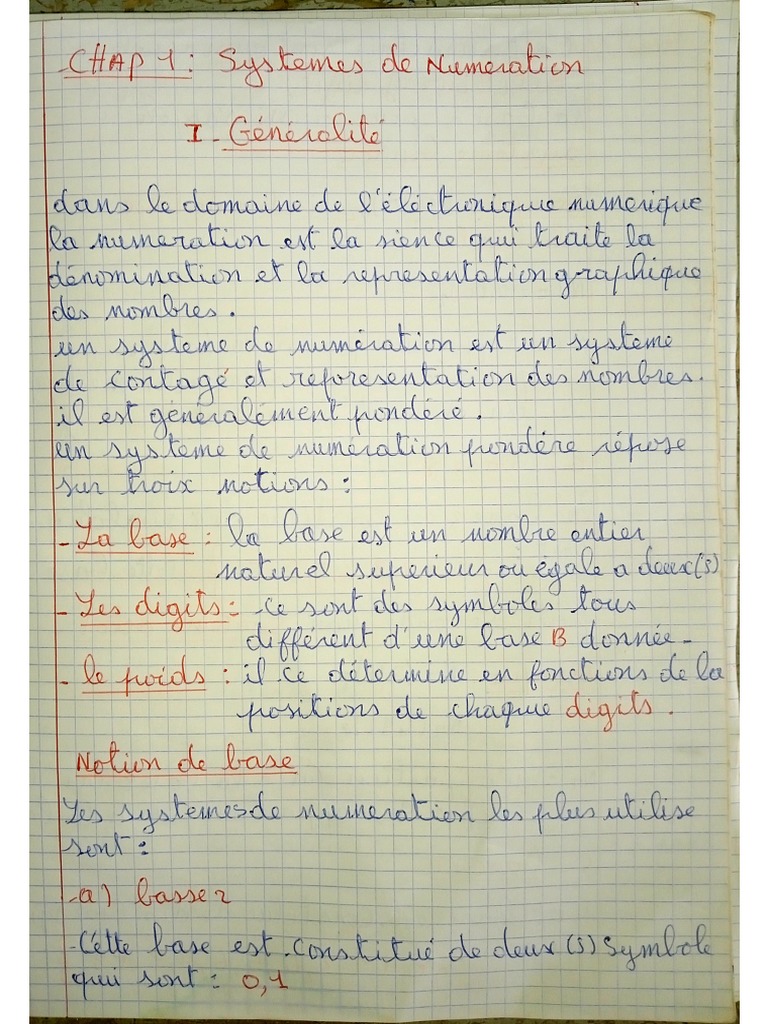 CHAP 1: Systemes de Numeration
I - Généralité
dans le domaine de l'éléctronique numerique
la numeration est la sience qui traite la
dénomination et la representation graphique
des nombres.
un systeme de numération est un systeme
de contagé et representation des nombres.
il est généralément pondéré.
un systeme de numération pondére répose
sur troix notions :
- La base : la base est un nombre entier
naturel superieur ou égale a deux(s)
- Les digits : ce sont des symboles tous
différent d'une base B donnée -
- le poids : il ce détermine en fonctions de la
positions de chaque digits.
Notion de base
Les systemes de numeration les plus utilise
sont :
- a) basse 2
- Cette base est constitué de deux (s) symbole
qui sont : 0,1